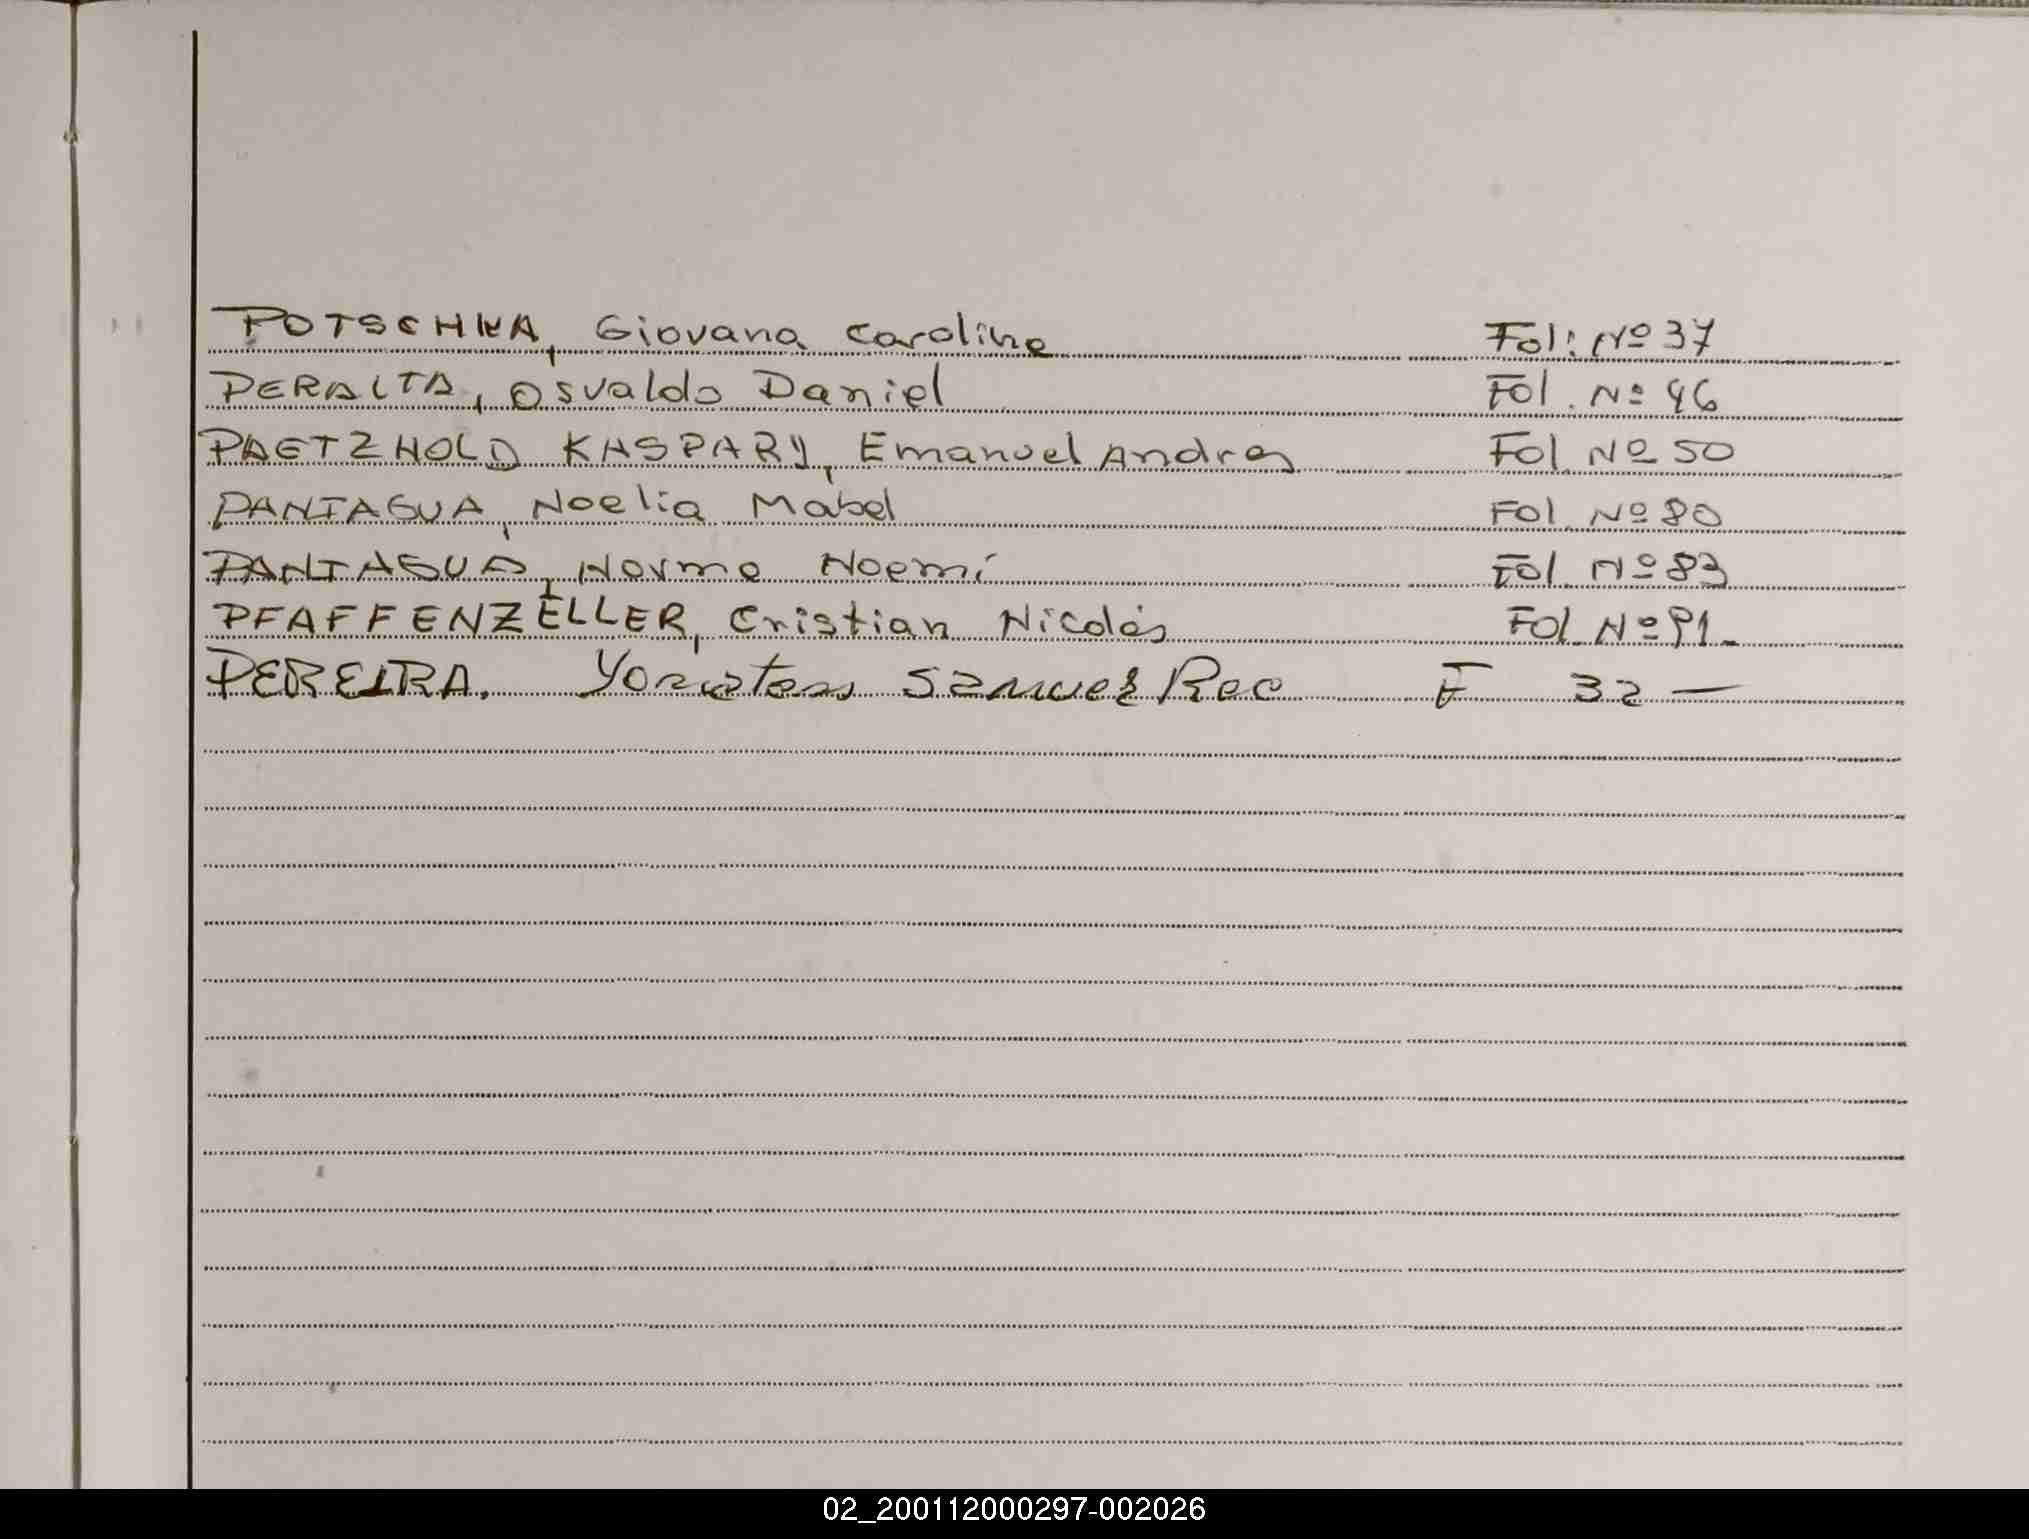 POTSCHKA, Giovana Caroline Fol: Nº 37
PERALTA, Osvaldo Daniel Fol. Nº 46
PAETZHOLD KASPARY, Emanuel Andres Fol. Nº 50
PANIAGUA, Noelia Mabel Fol. Nº 80
PANIAGUA, Norma Noemí Fol. Nº 83
PFAFFENZELLER, Cristian Nicolás Fol. Nº 91.
PEREIRA. Yonatan Samuel F 32 —
02_200112000297-002026